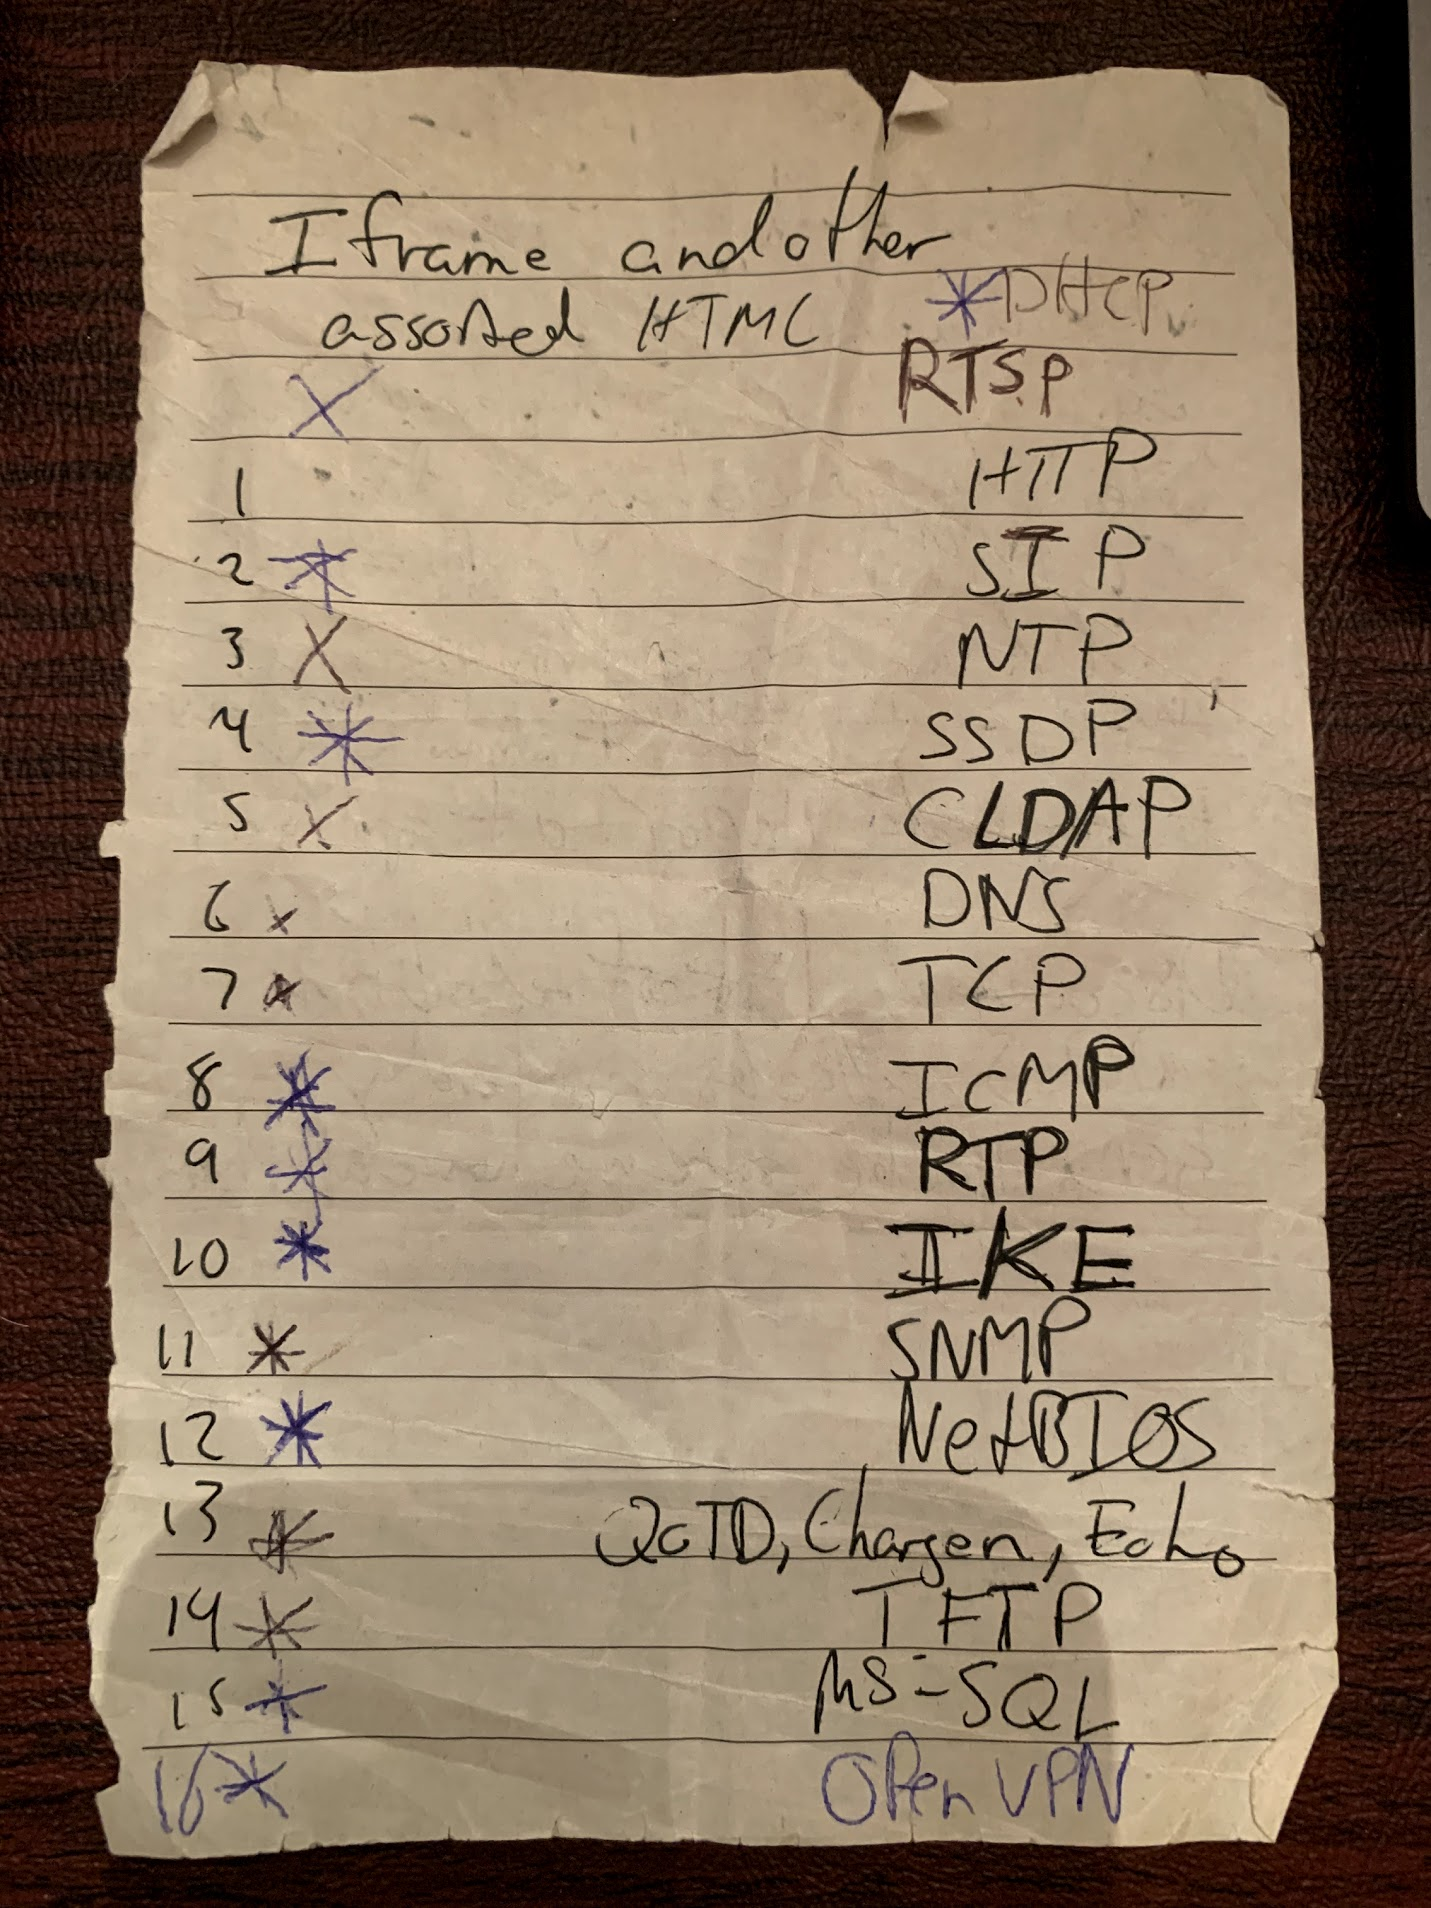 Iframe and other
assorted HTML
* DHCP
X RTSP
1 HTTP
2 * SIP
3 X NTP
4 * SSDP
5 X CLDAP
6 x DNS
7 x TCP
8 * ICMP
9 * RTP
10 * IKE
11 * SNMP
12 * NetBIOS
13 * QoTD, Chargen, Echo
14 * TFTP
15 * MS-SQL
16 * OPen VPN